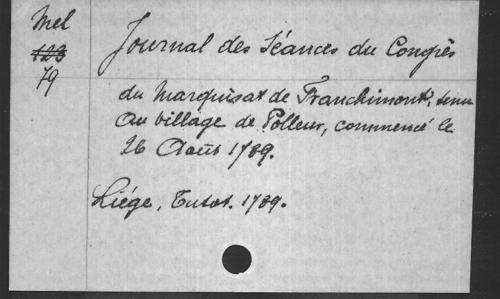 Mel
123
79
Journal des Séances du Congrès
du Marquisat de Franchimont, tenu
au village de Polleur, commencé le
26 Août 1789.
Liége, Tutot. 1789.